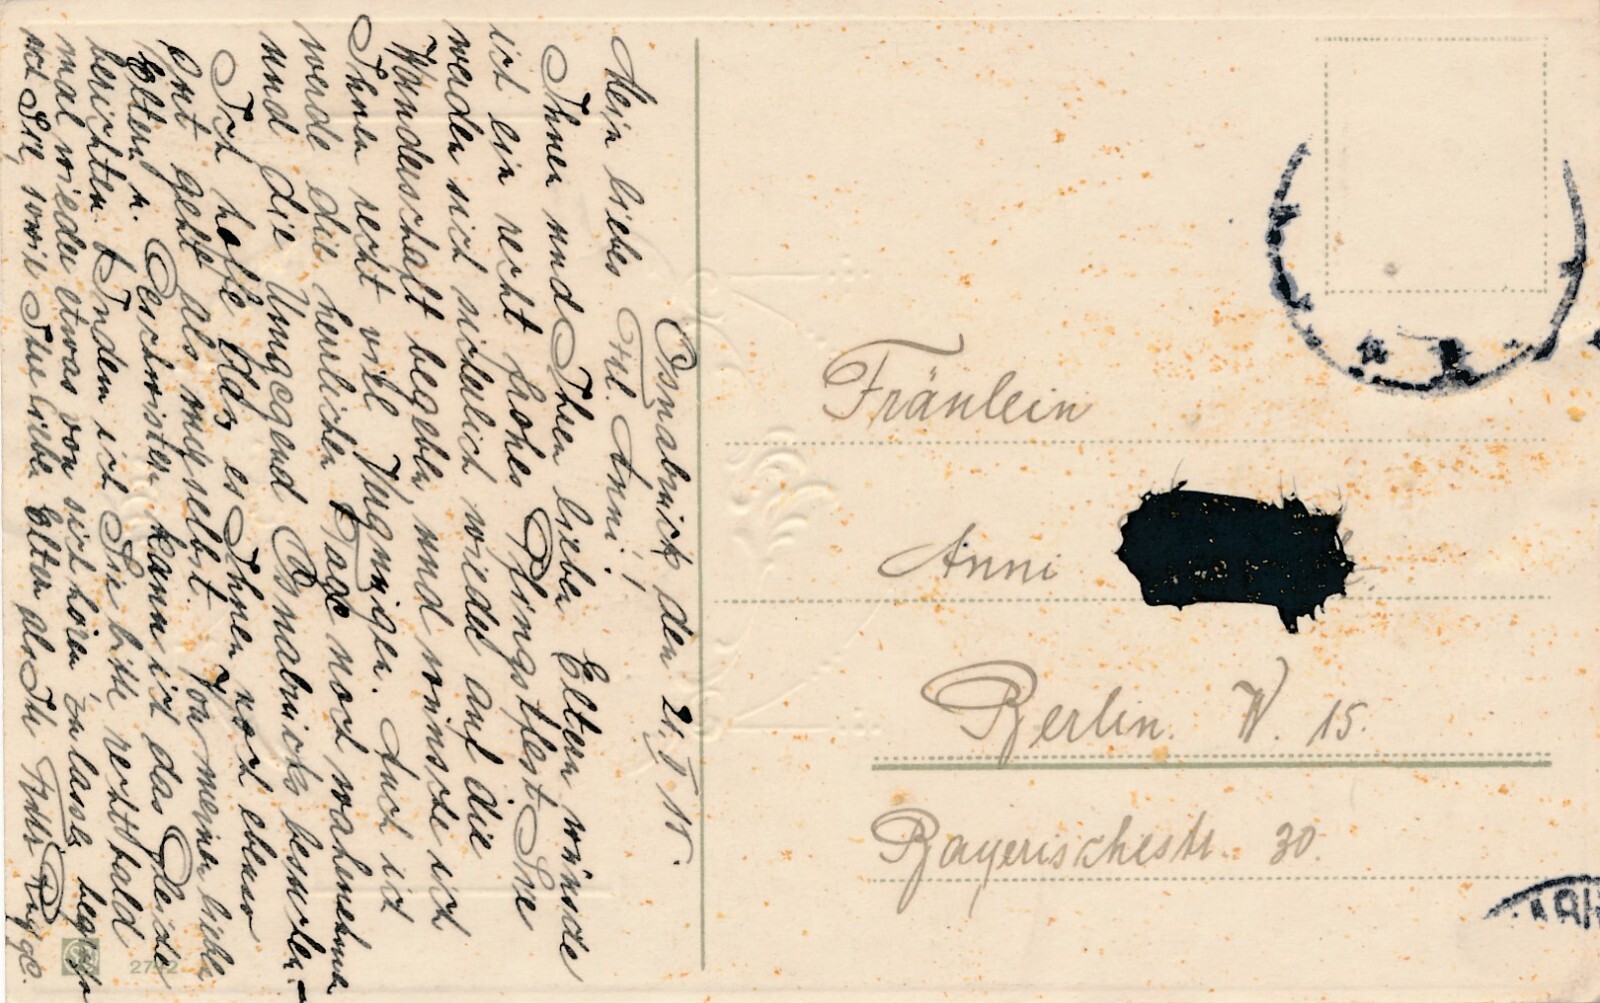 Osnabrück den 21.V.15.
Mein liebes Frl. Anni!
Ihnen und Ihren lieben Eltern wünsche
ich ein recht frohes Pfingstfest. Sie
werden sich sicherlich wieder auf die
Wanderschaft begeben, und wünsche ich
Ihnen recht viel Vergnügen. Auch ich
werde die herrlichen Tage noch wahrnehmen
und die Umgegend Osnabrücks besuchen.
Ich hoffe das es Ihnen noch ebenso
gut geht als mir selbst. Von meinen lieben
Eltern u. Geschwistern kann ich das Gleiche
berichten. Indem ich Sie bitte recht bald
mal wieder etwas von sich hören zu lassen, begrüße
ich Sie, sowie Ihre lieben Eltern als Ihr
Fräulein
Anni
Berlin. W. 15.
Bayerischestr. 30.
2792